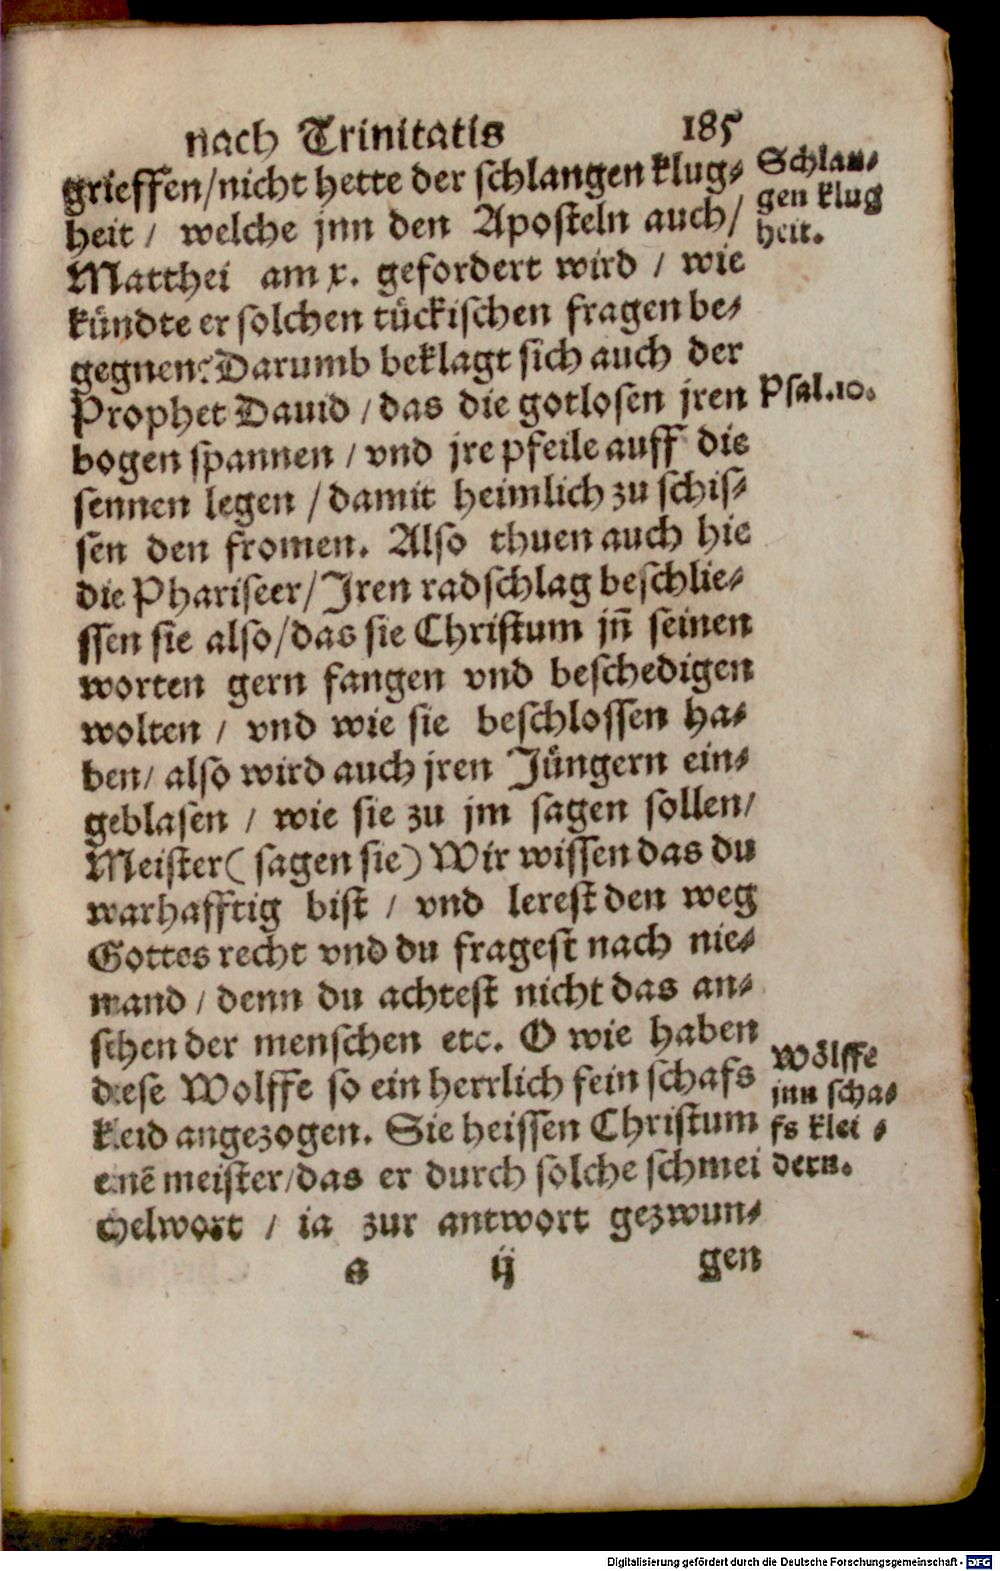 nach Trinitatis 185
grieffen/nicht hette der schlangen klug⸗
heit / welche jnn den Aposteln auch/
Matthei am x. gefordert wird / wie
kündte er solchen tückischen fragen be⸗
gegnen? Darumb beklagt sich auch der
Prophet Dauid / das die gotlosen jren
bogen spannen / vnd jre pfeile auff die
sennen legen / damit heimlich zu schis⸗
sen den fromen. Also thuen auch hie
die Phariseer/ Jren radschlag beschlie⸗
ssen sie also/das sie Christum jñ seinen
worten gern fangen vnd beschedigen
wolten / vnd wie sie beschlossen ha⸗
ben/ also wird auch jren Jüngern ein⸗
geblasen / wie sie zu jm sagen sollen/
Meister ( sagen sie) Wir wissen das du
warhafftig bist / vnd lerest den weg
Gottes recht vnd du fragest nach nie⸗
mand / denn du achtest nicht das an⸗
sehen der menschen etc. O wie haben
diese Wolffe so ein herrlich fein schafs
kleid angezogen. Sie heissen Christum
einē meister/das er durch solche schmei
chelwort / ia zur antwort gezwun⸗
s ij gen
Schlan⸗
gen klug
heit.
Psal.10.
Wölffe
jnn scha⸗
fs klei⸗
dern.
Digitalisierung gefördert durch die Deutsche Forschungsgemeinschaft - DFG